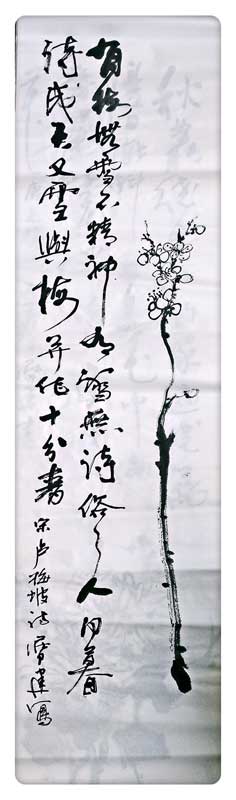 有梅無雪不精神有雪無詩俗了人日暮
詩成天又雪與梅并作十分春 宋卢梅坡诗 建寫